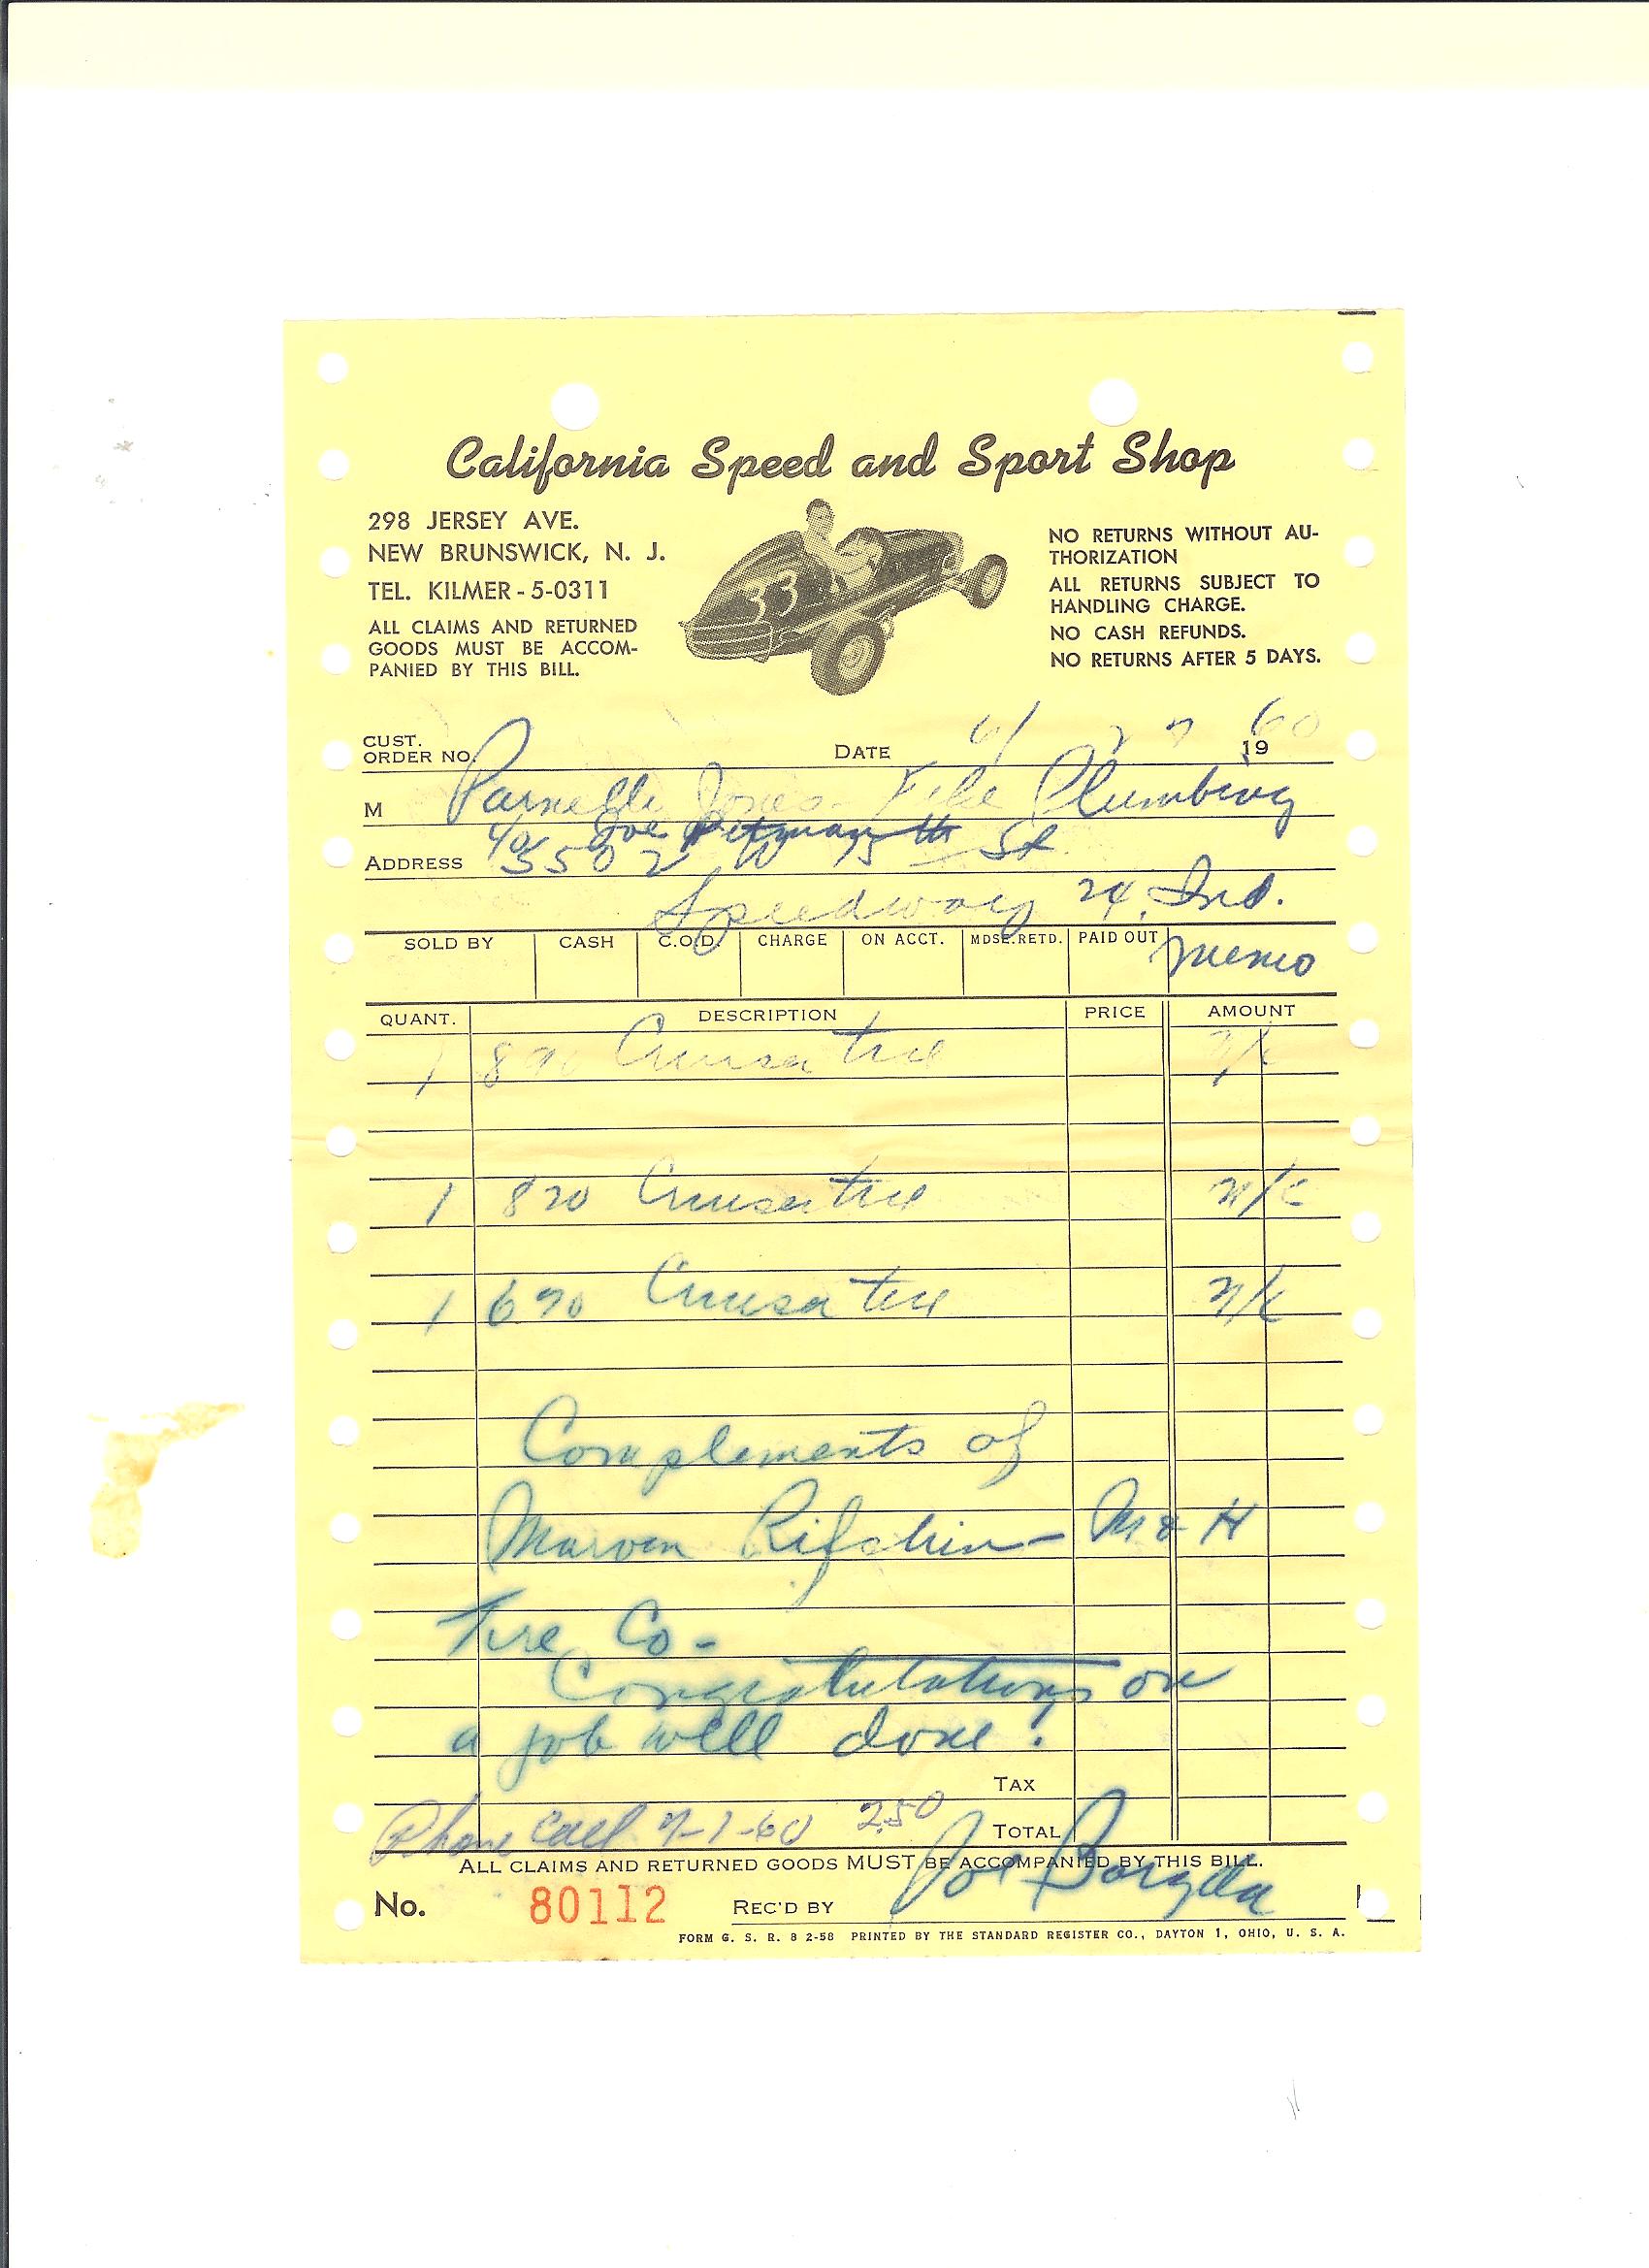 California Speed and Sport Shop
298 JERSEY AVE.
NEW BRUNSWICK, N. J.
TEL. KILMER - 5-0311
ALL CLAIMS AND RETURNED
GOODS MUST BE ACCOM-
PANIED BY THIS BILL.
33
NO RETURNS WITHOUT AU-
THORIZATION
ALL RETURNS SUBJECT TO
HANDLING CHARGE.
NO CASH REFUNDS.
NO RETURNS AFTER 5 DAYS.
CUST.
ORDER NO.
DATE 6/ 27 1960
M Parnelli Jones - Fike Plumbing
c/o Joe Pittman
ADDRESS 5502 W 15th St
Speedway 24, Ind.
SOLD BY CASH C.O.D. CHARGE ON ACCT. MDSE. RETD. PAID OUT Memo
QUANT. DESCRIPTION PRICE AMOUNT
1 890 tire N/C
1 820 tire N/C
1 670 tire N/C
Complements of
Marvin Rifchin - M & H
Tire Co -
Congratulations on
a job well done!
TAX
Phone call 7-1-60 2.50
TOTAL
ALL CLAIMS AND RETURNED GOODS MUST BE ACCOMPANIED BY THIS BILL.
No. 80112 REC'D BY Joe
FORM G. S. R. 8 2-58 PRINTED BY THE STANDARD REGISTER CO., DAYTON 1, OHIO, U. S. A.